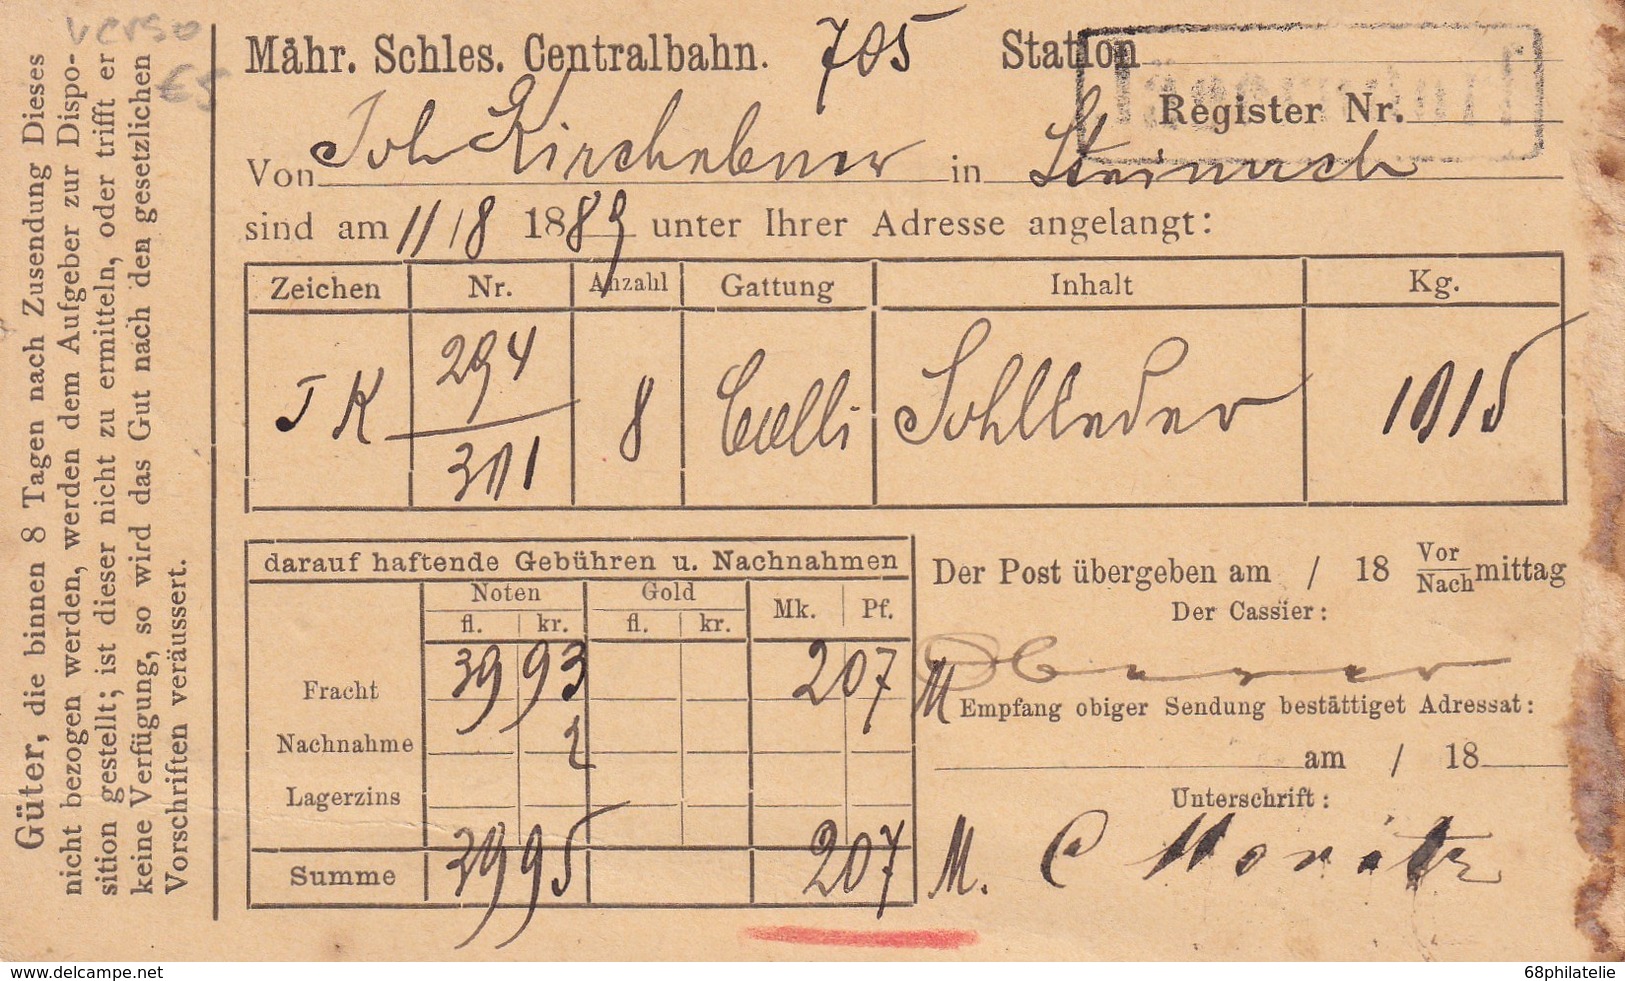 verso
€5
Güter, die binnen 8 Tagen nach Zusendung Dieses
nicht bezogen werden, werden dem Aufgeber zur Dispo-
sition gestellt; ist dieser nicht zu ermitteln, oder trifft er
keine Verfügung, so wird das Gut nach den gesetzlichen
Vorschriften veräussert.
Mähr. Schles. Centralbahn. 705 Station
Register Nr.
Von Joh Kirchebner in Steinach
sind am 11/8 1889 unter Ihrer Adresse angelangt:
Zeichen Nr. Anzahl Gattung Inhalt Kg.
JK 294 8 Colli Sohlleder 1915
301
darauf haftende Gebühren u. Nachnahmen
Noten Gold Mk. Pf.
fl. kr. fl. kr.
Fracht 39 93 207 M
Nachnahme 2
Lagerzins
Summe 39 95 207 M.
Der Post übergeben am / 18 Vor/Nach mittag
Der Cassier:
Empfang obiger Sendung bestättiget Adressat:
am / 18
Unterschrift:
C Moritz
www.delcampe.net
68philatelie